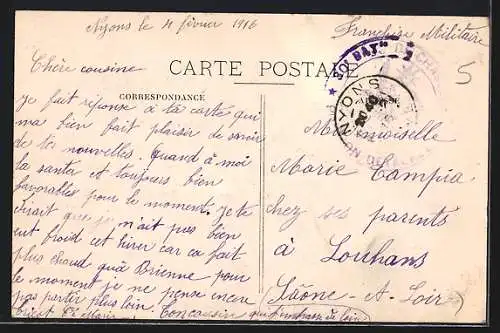 Nyons le 4 février 1916
Franchise Militaire
Chère cousine
CARTE POSTALE
5
CORRESPONDANCE
je fait réponse à ta carte qui
ma bien fait plaisir de savoir
de tes nouvelles. Quand à moi
la santer et toujours bien
favorables pour le moment. je te
dirait que je n'ait pas bien
eut froid cet hiver car ca fait
plus chaud qu'à Brienne pour
le moment je ne pense encore
pas partir plus loin.
Ton cousin qui
★ BAT
NYONS
Mademoiselle
Marie Campia
chez ses parents
à Louhans
(Saône-et-Loir)